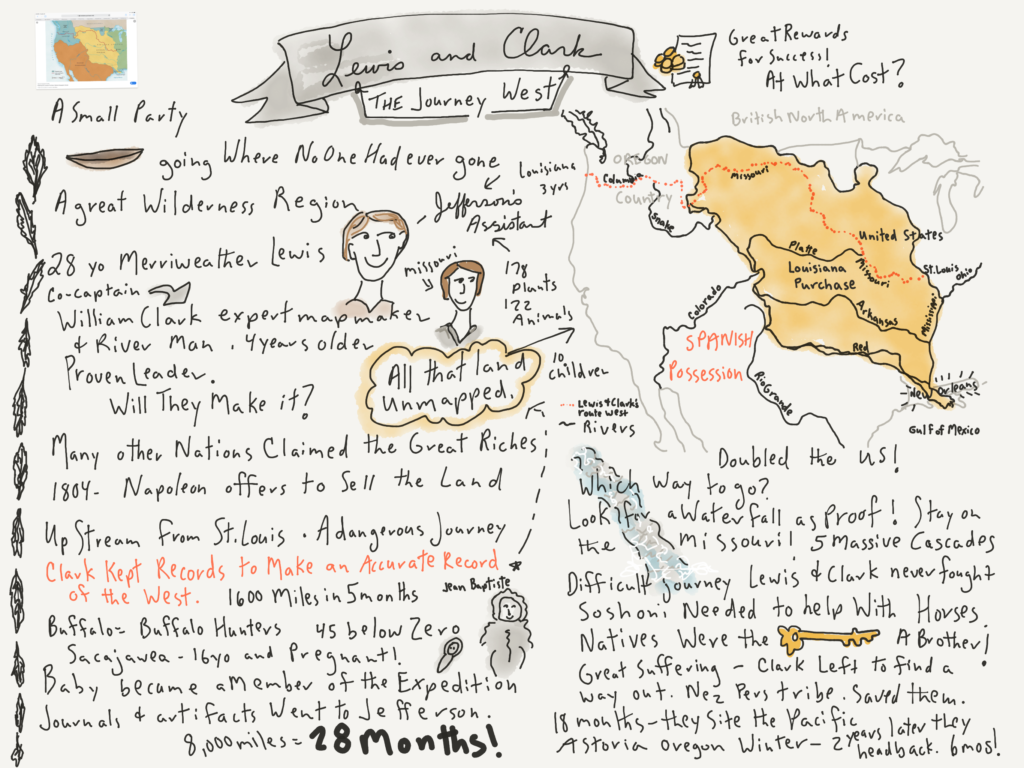 Lewis and Clark
THE Journey West
Great Rewards
for Success!
At What Cost?
A Small Party
going Where No One Had ever gone
A great Wilderness Region
Jefferson's
Assistant
Louisiana
3 yrs
28 yo Merriweather Lewis
Co-captain
missouri
178
Plants
122
Animals
William Clark expert mapmaker
& River Man . 4 years older
Proven Leader.
Will They Make it?
All that land
unmapped.
10
children
Many other Nations Claimed the Great Riches
1804- Napoleon offers to Sell the Land
Up Stream From St. Louis . A dangerous Journey
Clark Kept Records to Make an Accurate Record *
of the West. 1600 Miles in 5 months
Jean Baptiste
Buffalo = Buffalo Hunters 45 below Zero
Sacajawea - 16yo and Pregnant!
Baby became a Member of the Expedition
Journals & artifacts Went to Jefferson.
8,000 miles = 28 Months!
British North America
OREGON
Country
Columbia
Snake
Missouri
United States
Platte
Missouri
St. Louis
Ohio
Louisiana
Purchase
Colorado
Arkansas
Mississippi
Red
SPANISH
Possession
Rio Grande
New Orleans
Gulf of Mexico
Lewis & Clark's
route west
Rivers
Doubled the US!
Which way to go?
Look for a waterfall as Proof! Stay on
the Missouri! 5 Massive Cascades
Difficult journey Lewis & Clark never fought
Soshoni Needed to help With Horses.
Natives Were the A Brother!
Great Suffering - Clark Left to find a
way out. Nez Pers tribe. Saved them.
18 months - they Site the Pacific
Astoria Oregon Winter - 2 years later they
head back. 6mos!